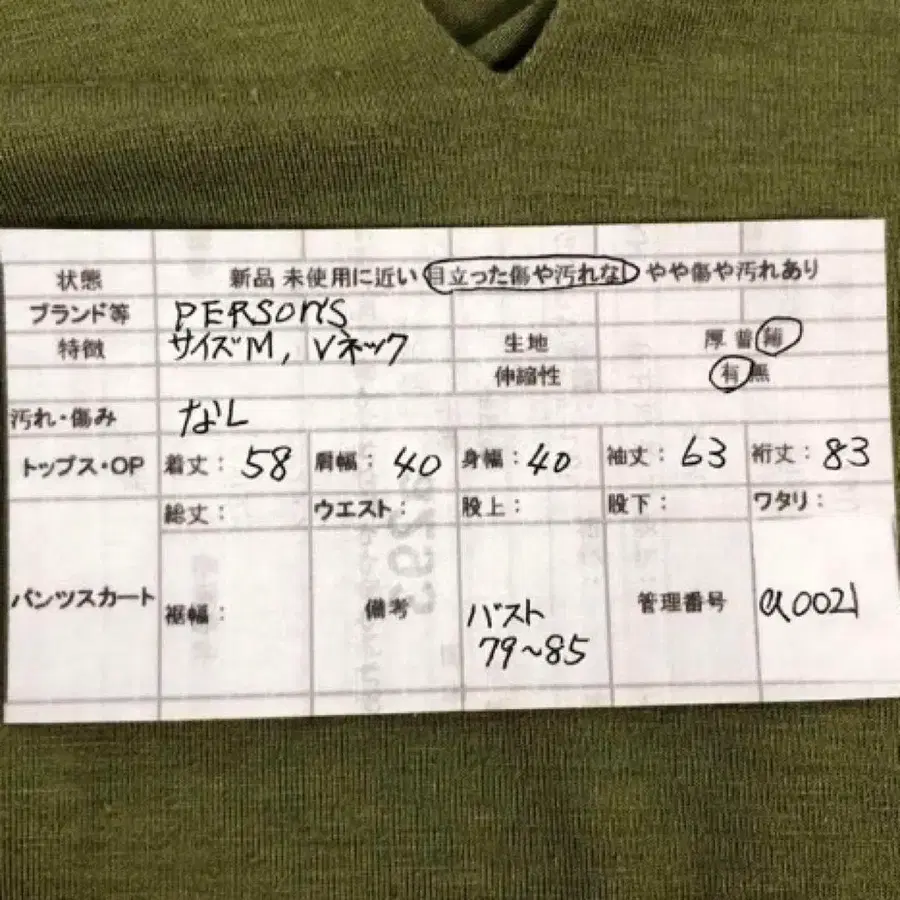 状態 新品 未使用に近い 目立った傷や汚れなし やや傷や汚れあり
ブランド等 PERSON'S
特徴 サイズM, Vネック 生地 厚 普 薄
伸縮性 有 無
汚れ・傷み なし
トップス・OP 着丈: 58 肩幅: 40 身幅: 40 袖丈: 63 裄丈: 83
総丈: ウエスト: 股上: 股下: ワタリ:
パンツスカート 裾幅: 備考 バスト 管理番号 a0021
79~85